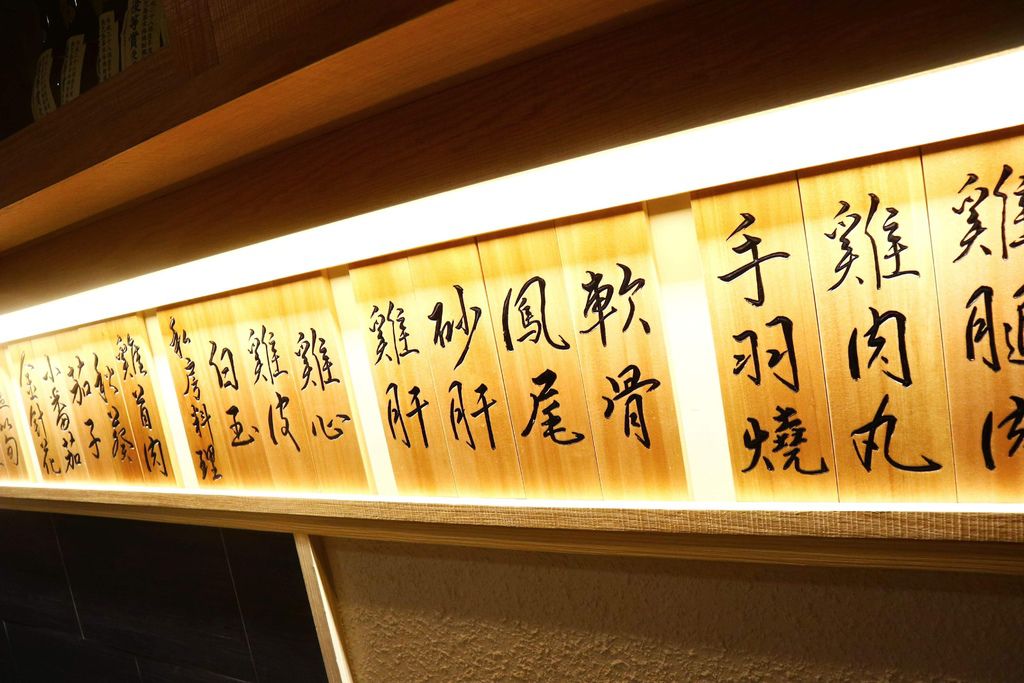 雞腿肉
雞肉丸
手羽燒
軟骨
鳳尾
砂肝
雞肝
雞心
雞皮
白玉
私房料理
雞首肉
秋葵
茄子
小番茄
金針花
筍